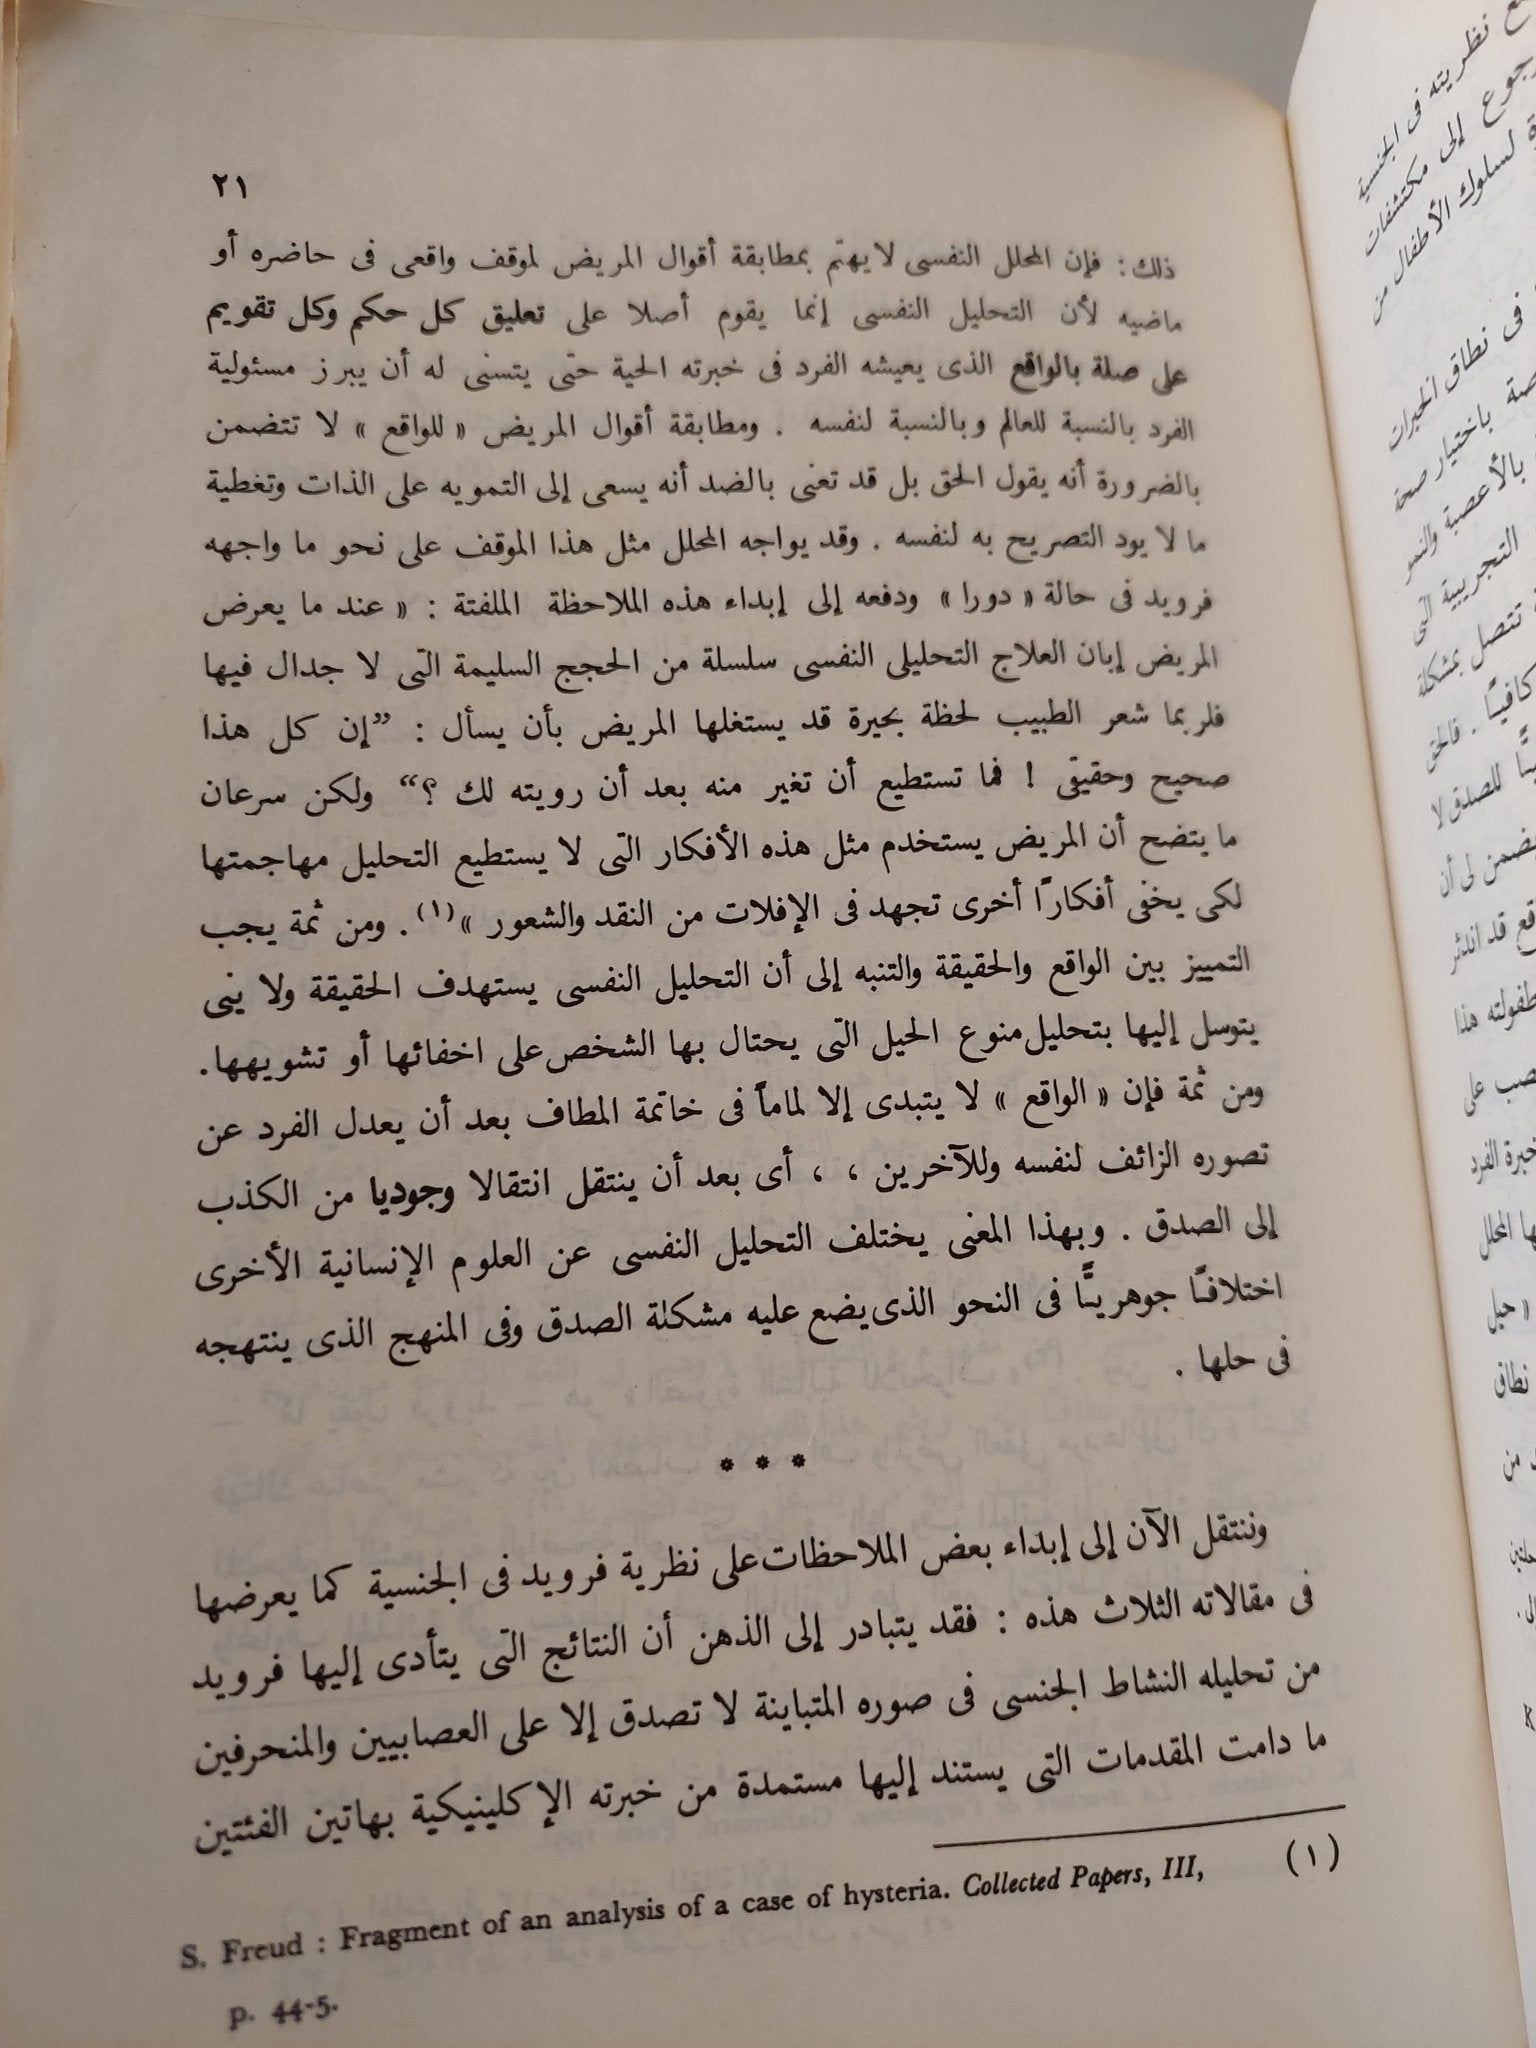 ٢١
ذلك : فإن المحلل النفسى لا يهتم بمطابقة أقوال المريض لموقف واقعى فى حاضره أو
ماضيه لأن التحليل النفسى إنما يقوم أصلا على تعليق كل حكم وكل تقويم
على صلة بالواقع الذى يعيشه الفرد فى خبرته الحية حتى يتسنى له أن يبرز مسئولية
الفرد بالنسبة للعالم وبالنسبة لنفسه . ومطابقة أقوال المريض « للواقع » لا تتضمن
بالضرورة أنه يقول الحق بل قد تعنى بالضد أنه يسعى إلى التمويه على الذات وتغطية
ما لا يود التصريح به لنفسه . وقد يواجه المحلل مثل هذا الموقف على نحو ما واجهه
فرويد فى حالة « دورا » ودفعه إلى إبداء هذه الملاحظة الملفتة : « عند ما يعرض
المريض إبان العلاج التحليلى النفسى سلسلة من الحجج السليمة التى لا جدال فيها
فلربما شعر الطبيب لحظة بحيرة قد يستغلها المريض بأن يسأل : ”إن كل هذا
صحيح وحقيقى ! فما تستطيع أن تغير منه بعد أن رويته لك ؟“ ولكن سرعان
ما يتضح أن المريض يستخدم مثل هذه الأفكار التى لا يستطيع التحليل مهاجمتها
لكى يخفى أفكارًا أخرى تجهد فى الإفلات من النقد والشعور »(١). ومن ثمة يجب
التمييز بين الواقع والحقيقة والتنبه إلى أن التحليل النفسى يستهدف الحقيقة ولا ينى
يتوسل إليها بتحليل منوع الحيل التى يحتال بها الشخص على اخفائها أو تشويهها.
ومن ثمة فإن « الواقع » لا يتبدى إلا لماماً فى خاتمة المطاف بعد أن يعدل الفرد عن
تصوره الزائف لنفسه وللآخرين ، ، أى بعد أن ينتقل انتقالا وجوديا من الكذب
إلى الصدق . وبهذا المعنى يختلف التحليل النفسى عن العلوم الإنسانية الأخرى
اختلافًا جوهريًّا فى النحو الذى يضع عليه مشكلة الصدق وفى المنهج الذى ينتهجه
فى حلها .
* * *
وننتقل الآن إلى إبداء بعض الملاحظات على نظرية فرويد فى الجنسية كما يعرضها
فى مقالاته الثلاث هذه : فقد يتبادر إلى الذهن أن النتائج التى يتأدى إليها فرويد
من تحليله النشاط الجنسى فى صوره المتباينة لا تصدق إلا على العصابيين والمنحرفين
ما دامت المقدمات التى يستند إليها مستمدة من خبرته الإكلينيكية بهاتين الفئتين
(١)
S. Freud : Fragment of an analysis of a case of hysteria. Collected Papers, III,
p. 44-5.
نظريته فى الجنسية
إلى مكتشفات
لسلوك الأطفال من
فى نطاق الخبرات
باختيار صحة
بالأعصبة والنمو
التجريبية التى
تتصل بمشكلة
كافيًا . فالحق
للصدق لا
لى أن
قد اندثر
طفولته هذا
على
خبرة الفرد
المحلل
« حيل
نطاق
من